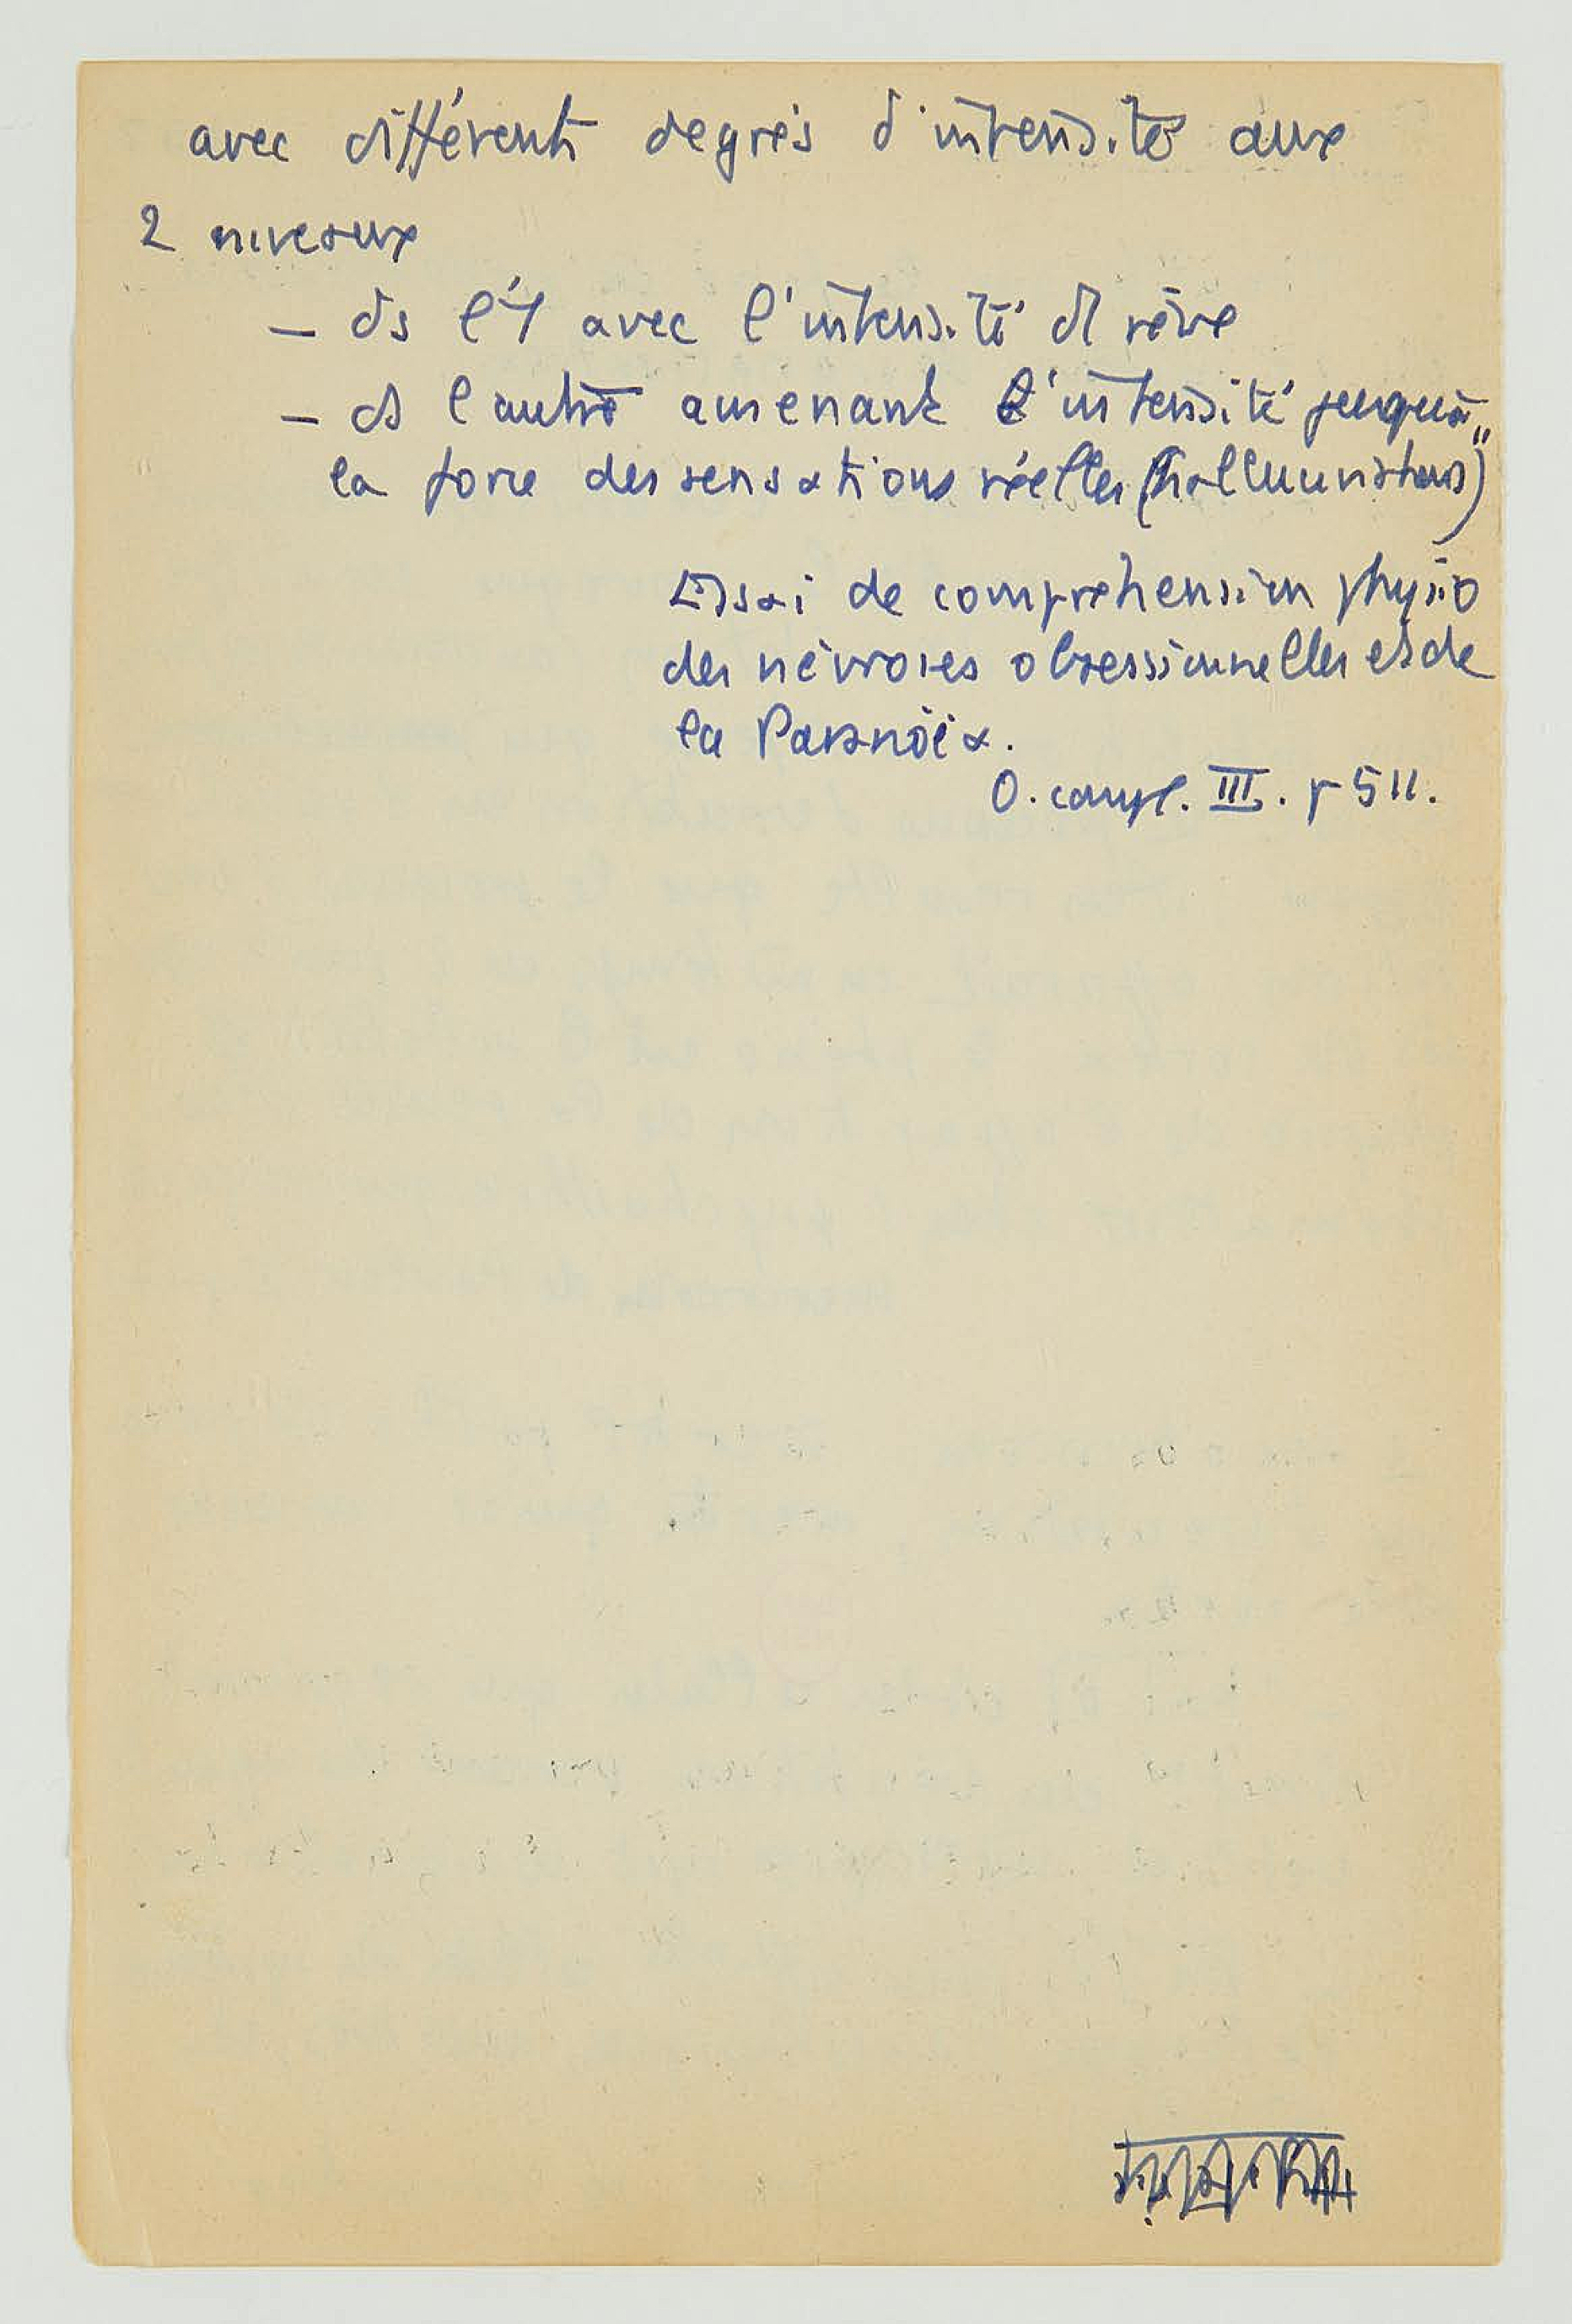 avec différents degrés d'intensité aux
2 niveaux
– ds l'1 avec l'intensité du rêve
– ds l'autre amenant l'intensité jusqu'à
la force des sensations réelles (hallucinations)"
Essai de compréhension physio
des névroses obsessionnelles et de
la Paranoïa.
O. compl. III. p 511.